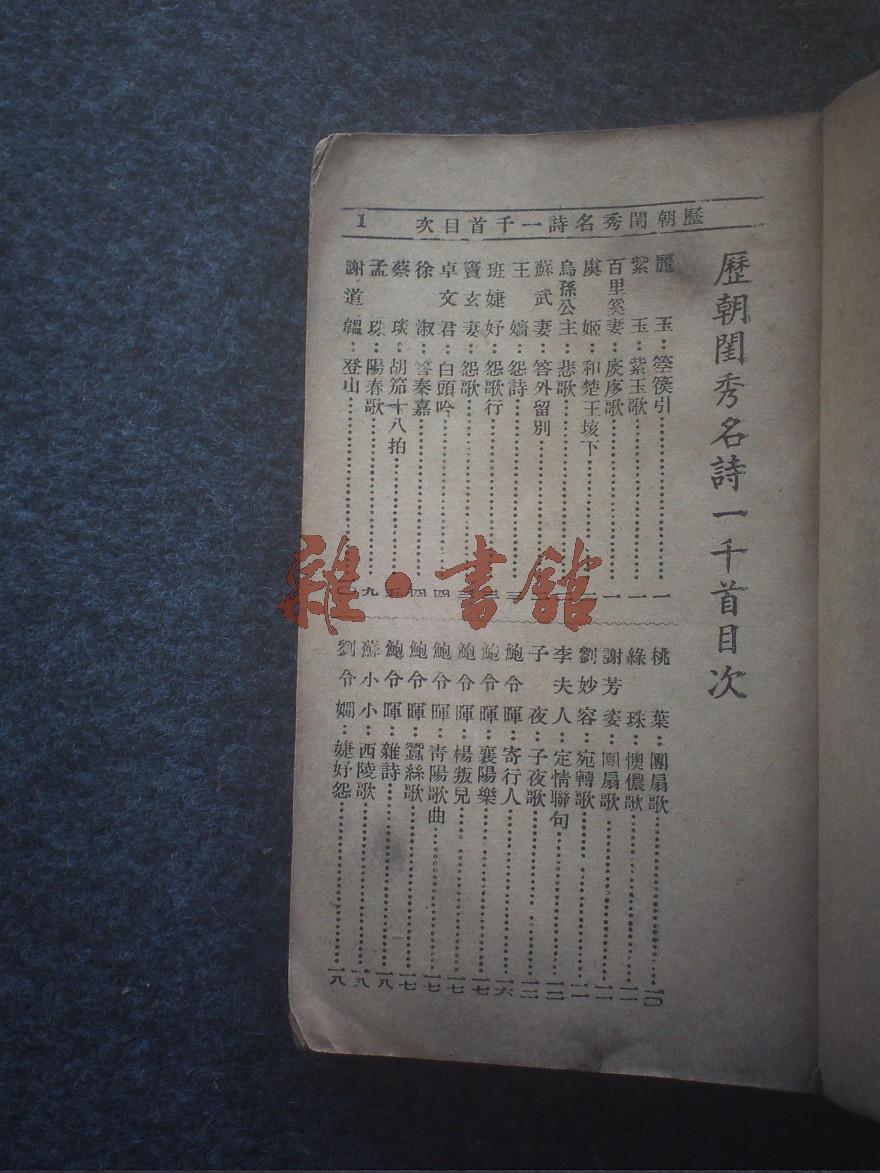 歷朝閨秀名詩一千首目次 1
歷朝閨秀名詩一千首目次
麗玉：箜篌引……一
紫玉：紫玉歌……一
百里奚妻：扊扅歌……一
虞姬：和楚王垓下……
烏孫公主：悲歌……
蘇武妻：答外留別……
王嬙：怨詩……三
班婕妤：怨歌行……
竇玄妻：怨歌……
卓文君：白頭吟……四
徐淑：答秦嘉……四
蔡琰：胡笳十八拍……五
孟珠：陽春歌……九
謝道韞：登山……
桃葉：團扇歌……一〇
綠珠：懊儂歌……一一
謝芳姿：團扇歌……一一
劉妙容：宛轉歌……一一
李夫人：定情聯句……一二
子夜：子夜歌……一二
鮑令暉：寄行人……一六
鮑令暉：襄陽樂……一七
鮑令暉：楊叛兒……一七
鮑令暉：青陽歌曲……一七
鮑令暉：蠶絲歌……一七
鮑令暉：雜詩……一八
蘇小小：西陵歌……一八
劉令嫻：婕妤怨……一八
雜·書館